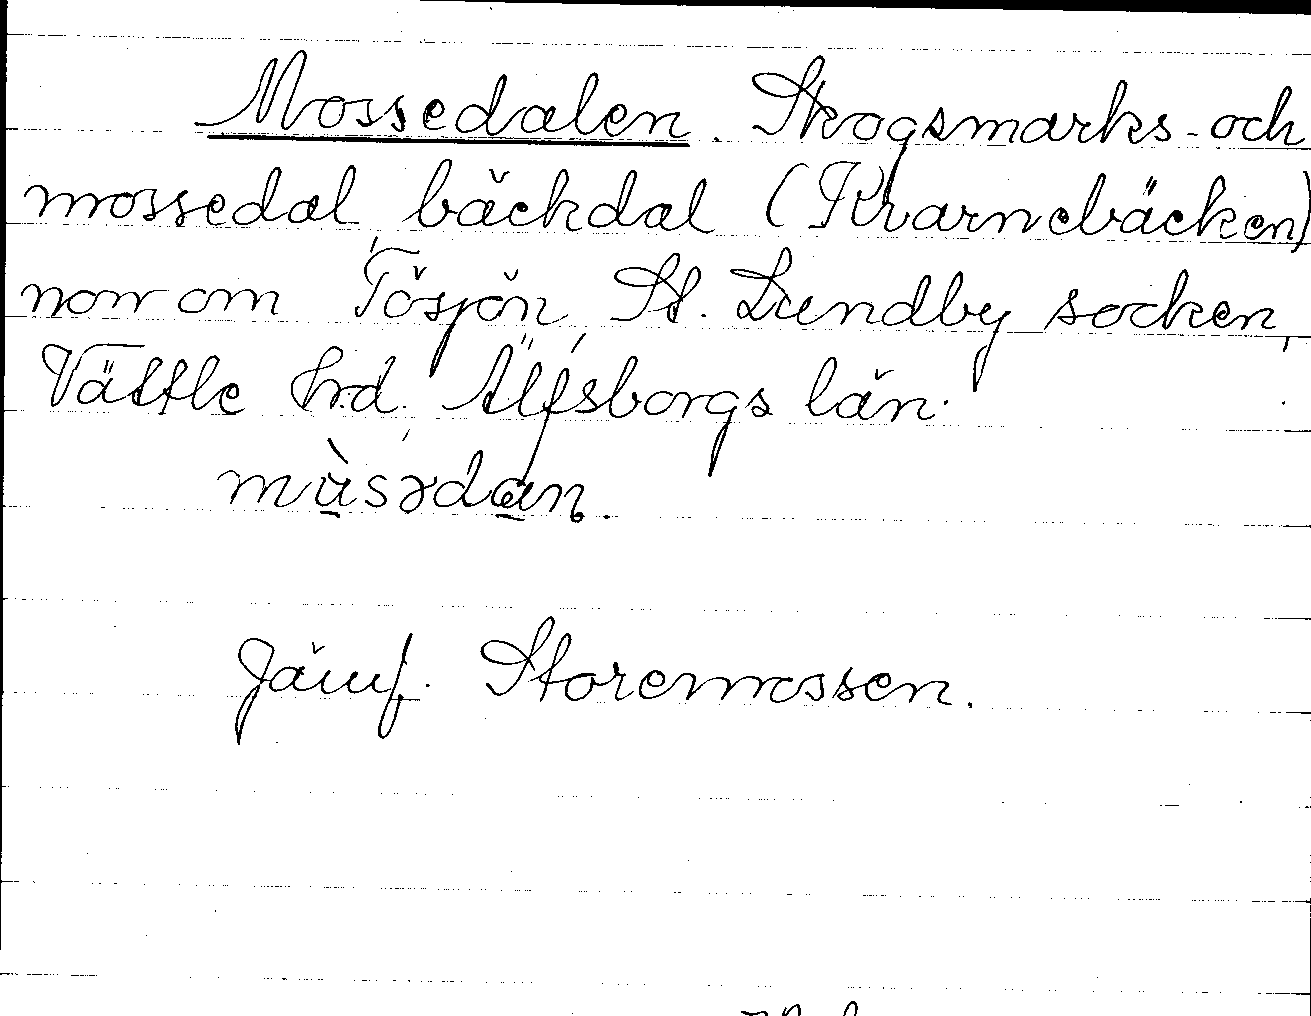 Mossedalen. Skogsmarks- och
mossedal, bäckdal (Kvarnebäcken)
norr om Tösjön, St. Lundby socken,
Vättle hd. Älfsborgs län.
mùsədan.
Jämf. Storemossen.